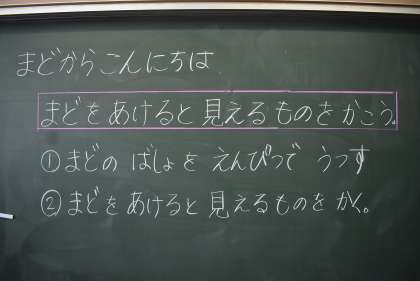 まどからこんにちは
まどをあけると見えるものをかこう。
①まどの ばしょを えんぴつで うつす
②まどを あけると見えるものを かく。